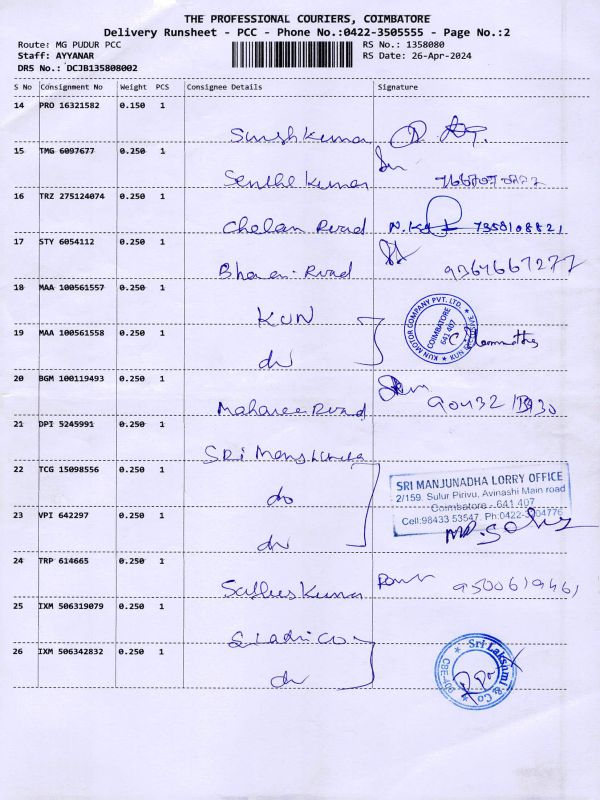 THE PROFESSIONAL COURIERS, COIMBATORE
Delivery Runsheet - PCC - Phone No.:0422-3505555 - Page No.:2
Route: MG PUDUR PCC
RS No.: 1358080
Staff: AYYANAR
RS Date: 26-Apr-2024
DRS No.: DCJB135808002
S No Consignment No Weight PCS Consignee Details Signature
14 PRO 16321582 0.150 1
Suresh Kumar
15 TMG 6097677 0.250 1
Senthil Kumar
16 TRZ 275124074 0.250 1
Chelan Road 7358108821
17 STY 6054112 0.250 1
Road 9364667277
18 MAA 100561557 0.250 1
KUN
KUN MOTOR COMPANY PVT. LTD.
COIMBATORE
641 407
19 MAA 100561558 0.250 1
do
20 BGM 100119493 0.250 1
Road
21 DPI 5245991 0.250 1
SRI
22 TCG 15098556 0.250 1
do
SRI MANJUNADHA LORRY OFFICE
2/159, Sulur Pirivu, Avinashi Main road
Coimbatore - 641 407
Cell:98433 53547, Ph:0422-
23 VPI 642297 0.250 1
do
24 TRP 614665 0.250 1
Kumar 9500619461
25 IXM 506319079 0.250 1
26 IXM 506342832 0.250 1
do
Sri Lakshmi & Co